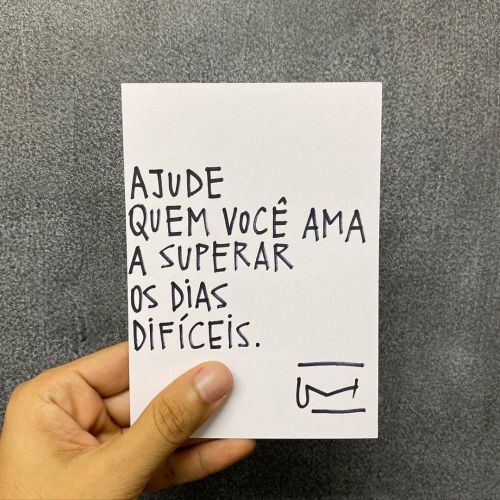 AJUDE
QUEM VOCÊ AMA
A SUPERAR
OS DIAS
DIFÍCEIS.